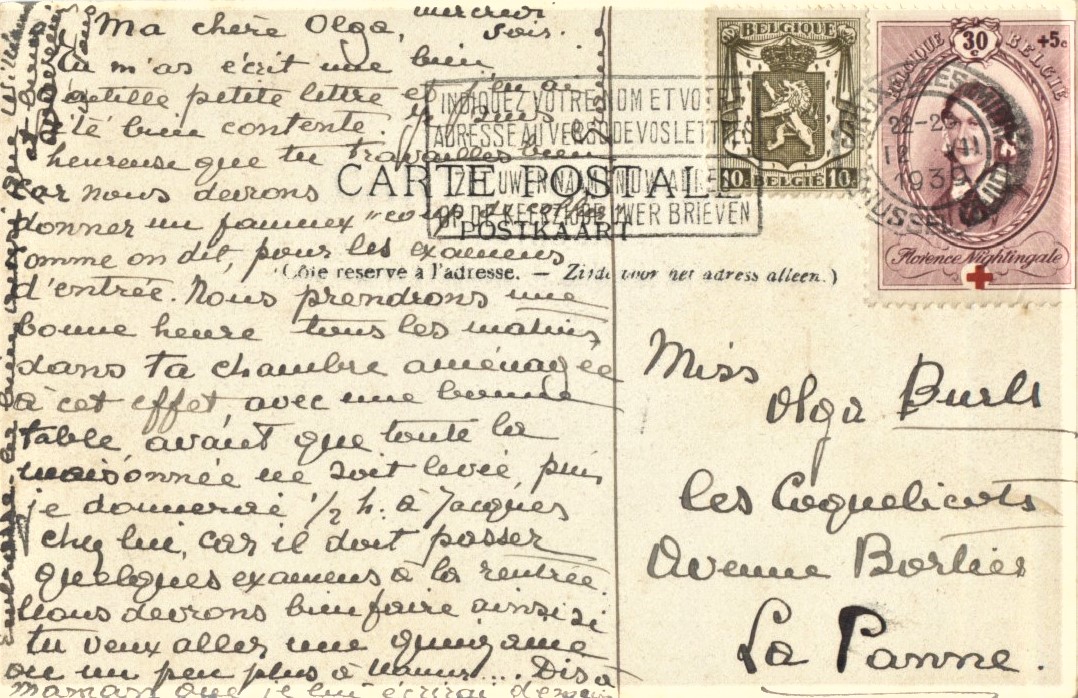 mercredi
soir.
Ma chère Olga,
Tu m'as écrit une bien
gentille petite lettre et j'en ai
été bien contente. Je suis
heureuse que tu travailles bien
car nous devrons
donner un fameux "coup de collier"
comme on dit, pour les examens
d'entrée. Nous prendrons une
bonne heure tous les matins,
dans ta chambre aménagée
à cet effet, avec une bonne
table avant que toute la
maisonnée ne soit levée, puis
je donnerai 1/2 h. à Jacques
chez lui, car il doit passer
quelques examens à la rentrée
Nous devrons bien faire ainsi si
tu veux aller une quinzaine
ou un peu plus à Namur... Dis à
maman que je lui écrirai demain
et bonne
BELGIQUE
10c BELGIË 10c
BELGIQUE 30c BELGIË +5c
Florence Nightingale
22-23
12 VII
1939
INDIQUEZ VOTRE NOM ET VOTRE
ADRESSE AU VERSO DE VOS LETTRES
OP DE KEERZIJDE UWER BRIEVEN
CARTE POSTALE
POSTKAART
(Côté réservé à l'adresse. — Zijde voor het adress alleen.)
Miss
Olga Burls
les Coquelicots
Avenue Bortier
La Panne.